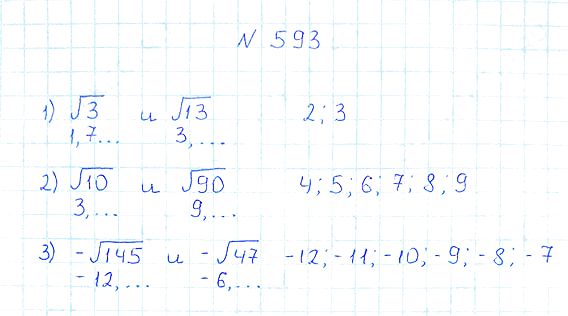 N 593
1) √3 и √13 2; 3
1,7... 3,...
2) √10 и √90 4; 5; 6; 7; 8; 9
3,... 9,...
3) -√145 и -√47 -12; -11; -10; -9; -8; -7
-12,... -6,...